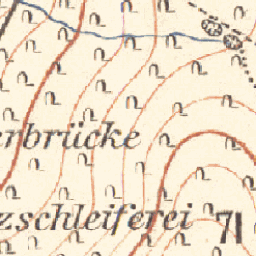 erbrücke
zschleiferei 71